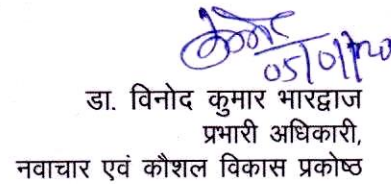 05/01/20
डा. विनोद कुमार भारद्वाज
प्रभारी अधिकारी,
नवाचार एवं कौशल विकास प्रकोष्ठ